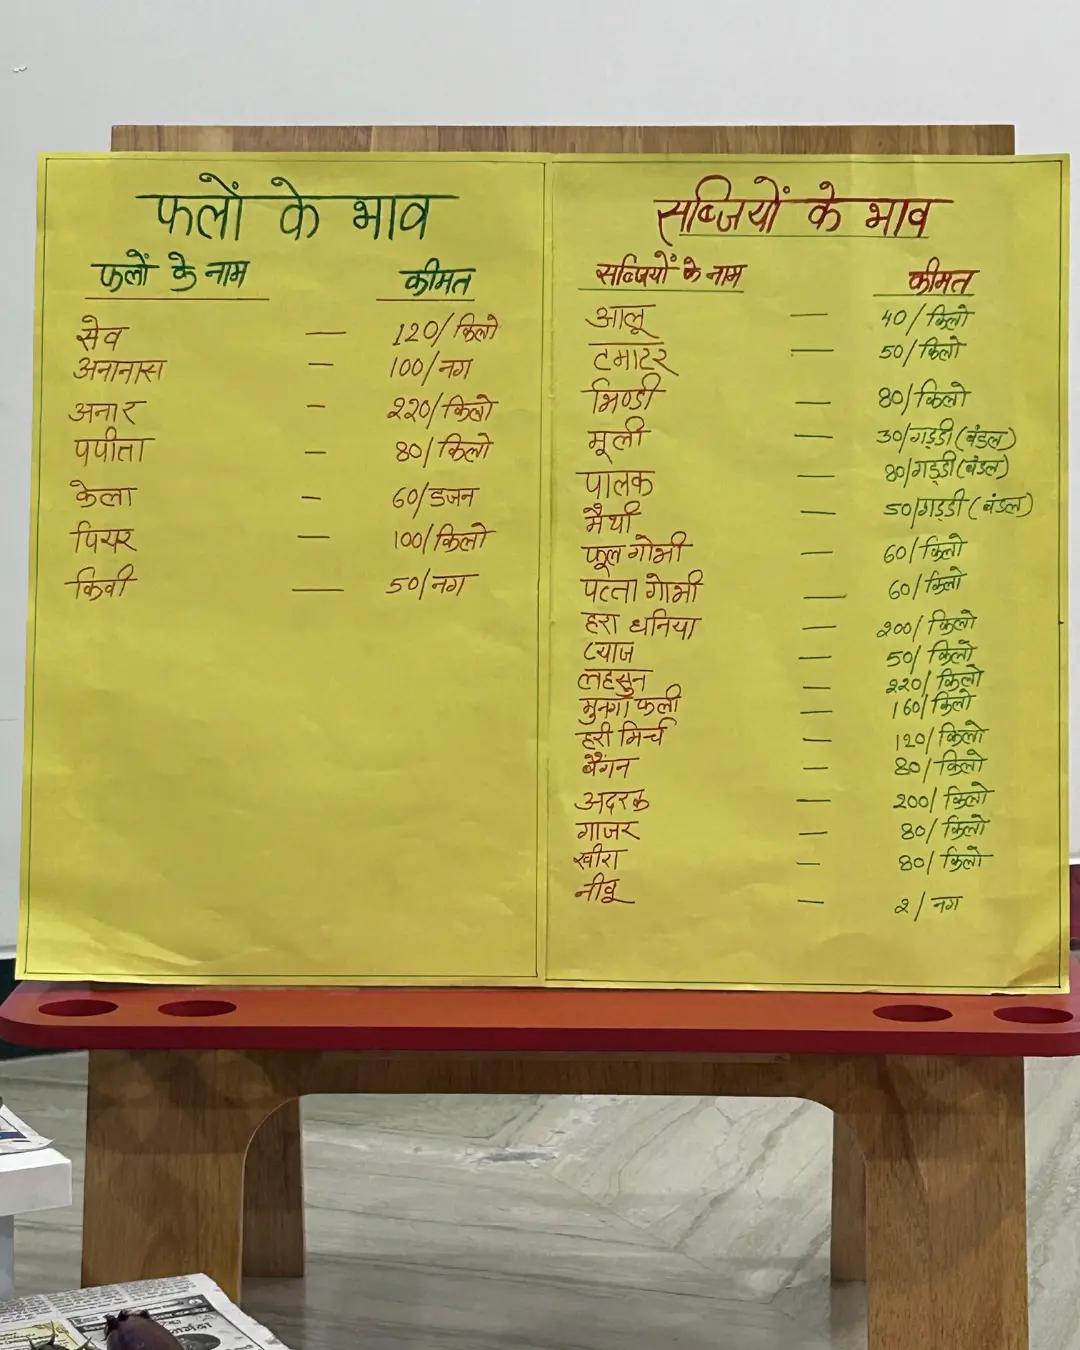 फलों के भाव
फलों के नाम कीमत
सेव — 120/किलो
अनानास — 100/नग
अनार — 220/किलो
पपीता — 80/किलो
केला — 60/डजन
पियर — 100/किलो
किवी — 50/नग
सब्जियों के भाव
सब्जियों के नाम कीमत
आलू — 40/किलो
टमाटर — 50/किलो
भिण्डी — 80/किलो
मूली — 30/गड्डी(बंडल)
पालक 80/गड्डी(बंडल)
मैथी — 50/गड्डी(बंडल)
फूल गोभी — 60/किलो
पत्ता गोभी — 60/किलो
हरा धनिया — 200/किलो
प्याज — 50/किलो
लहसुन — 220/किलो
मुनगा फली — 160/किलो
हरी मिर्च — 120/किलो
बैंगन — 80/किलो
अदरक — 200/किलो
गाजर — 80/किलो
खीरा — 80/किलो
नीबू — 2/नग